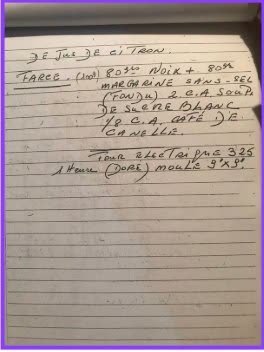 DE JUS DE CITRON.
FARCE. 80 grs NOIX + 80 grs
MARGARINE SANS-SEL
(FONDU) 2 C.A SOUPE
DE SUCRE BLANC
1/8 C.A. CAFÉ DE
CANELLE.
FOUR ELECTRIQUE 325
1 Heure (DORÉ) MOULE 9"X9".